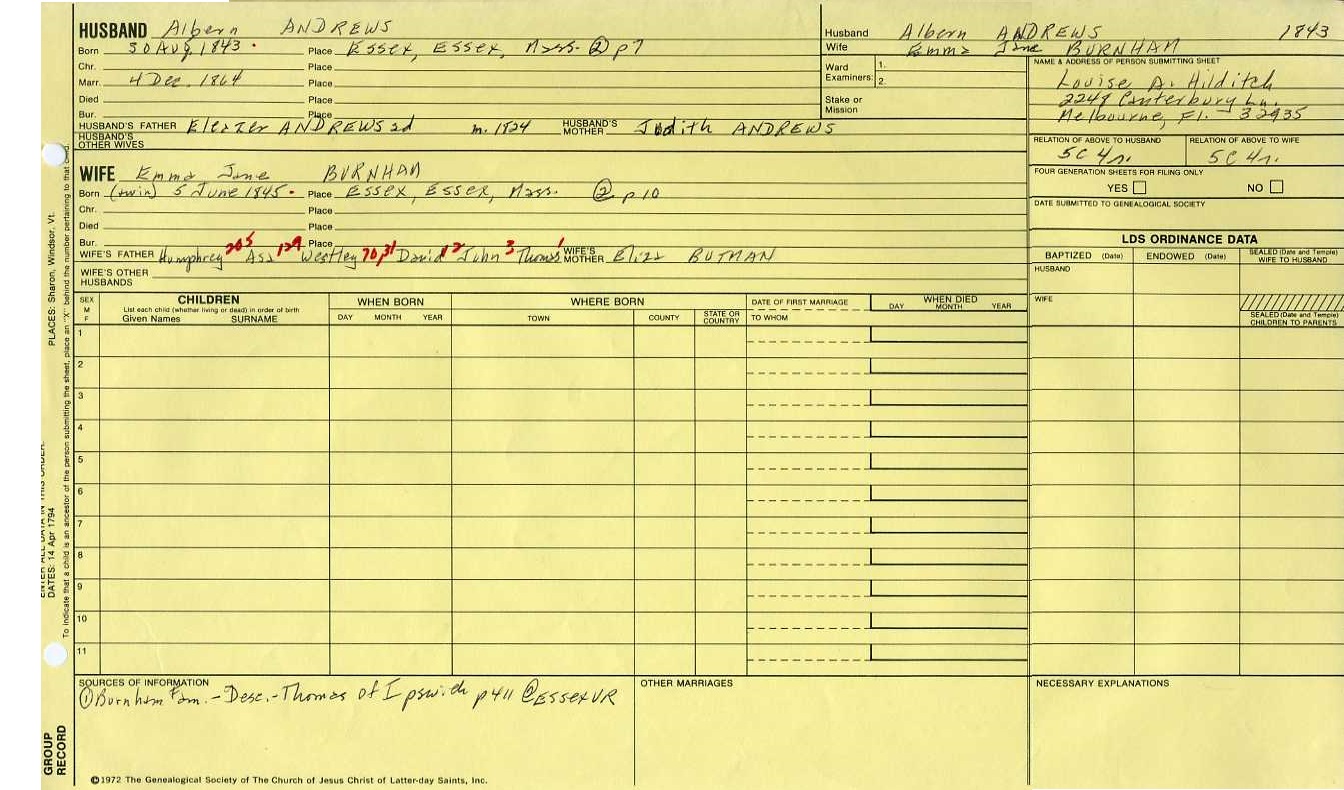 HUSBAND Albern ANDREWS
Born 30 Aug, 1843 • Place Essex, Essex, Mass. ② p7
Chr. Place
Marr. 4 Dec. 1864 Place
Died Place
Bur. Place
HUSBAND'S FATHER Eleazer ANDREWS 2d m. 1824 HUSBAND'S MOTHER Judith ANDREWS
HUSBAND'S OTHER WIVES
WIFE Emma Jane BURNHAM
Born (twin) 5 June 1845 • Place Essex, Essex, Mass. ② p10
Chr. Place
Died Place
Bur. Place
WIFE'S FATHER Humphrey 205 Asa 129 Westley 70,31 David 12 John 3 Thomas 1 WIFE'S MOTHER Eliza BUTMAN
WIFE'S OTHER HUSBANDS
Husband Albern ANDREWS 1843
Wife Emma Jane BURNHAM
Ward Examiners: 1.
2.
Stake or Mission
NAME & ADDRESS OF PERSON SUBMITTING SHEET
Louise A. Hilditch
2249 Canterbury Ln.
Melbourne, Fl. 32935
RELATION OF ABOVE TO HUSBAND RELATION OF ABOVE TO WIFE
5C 4r. 5C 4r.
FOUR GENERATION SHEETS FOR FILING ONLY
YES NO
DATE SUBMITTED TO GENEALOGICAL SOCIETY
LDS ORDINANCE DATA
BAPTIZED (Date) ENDOWED (Date) SEALED (Date and Temple) WIFE TO HUSBAND
HUSBAND
WIFE
SEALED (Date and Temple) CHILDREN TO PARENTS
SEX M F
CHILDREN
List each child (whether living or dead) in order of birth
Given Names SURNAME
WHEN BORN
DAY MONTH YEAR
WHERE BORN
TOWN COUNTY STATE OR COUNTRY
DATE OF FIRST MARRIAGE
TO WHOM
WHEN DIED
DAY MONTH YEAR
1
2
3
4
5
6
7
8
9
10
11
SOURCES OF INFORMATION
① Burnham Fam. - Desc. - Thomas of Ipswich p411 ② ESSEX VR
OTHER MARRIAGES
NECESSARY EXPLANATIONS
©1972 The Genealogical Society of The Church of Jesus Christ of Latter-day Saints, Inc.
GROUP RECORD
DATES: 14 Apr 1794
PLACES: Sharon, Windsor, Vt.
To indicate that a child is an ancestor of the person submitting the sheet, place an "X" behind the number pertaining to that child.